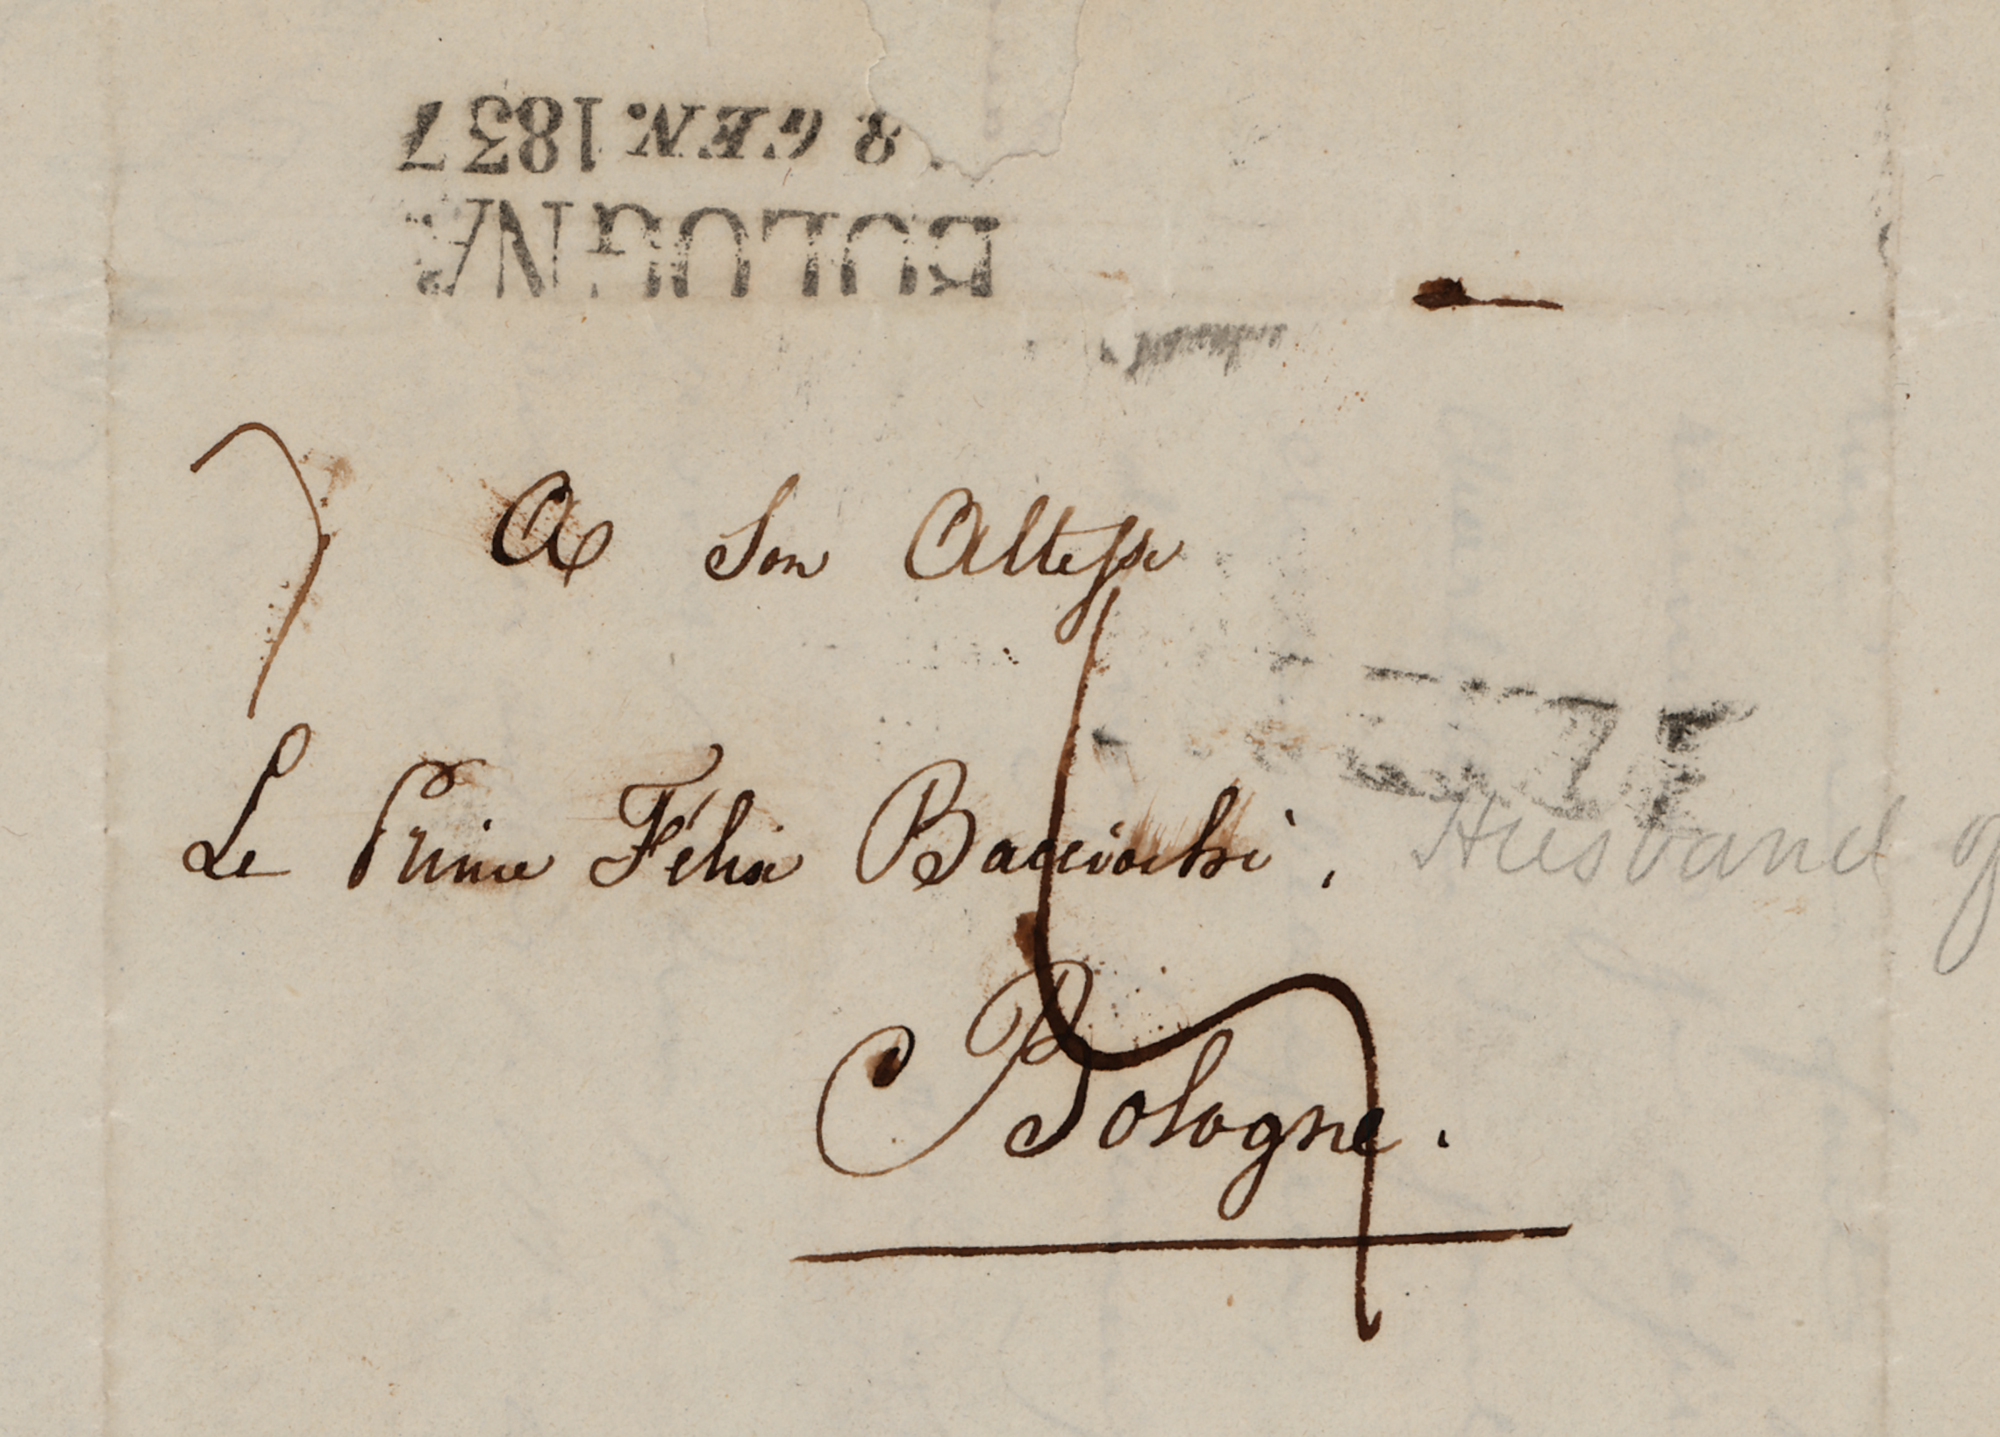 BOLOGNA
8 GEN. 1837
A Son Altesse
Le Prince Félix Bacciochi,
Husband of
Bologne.